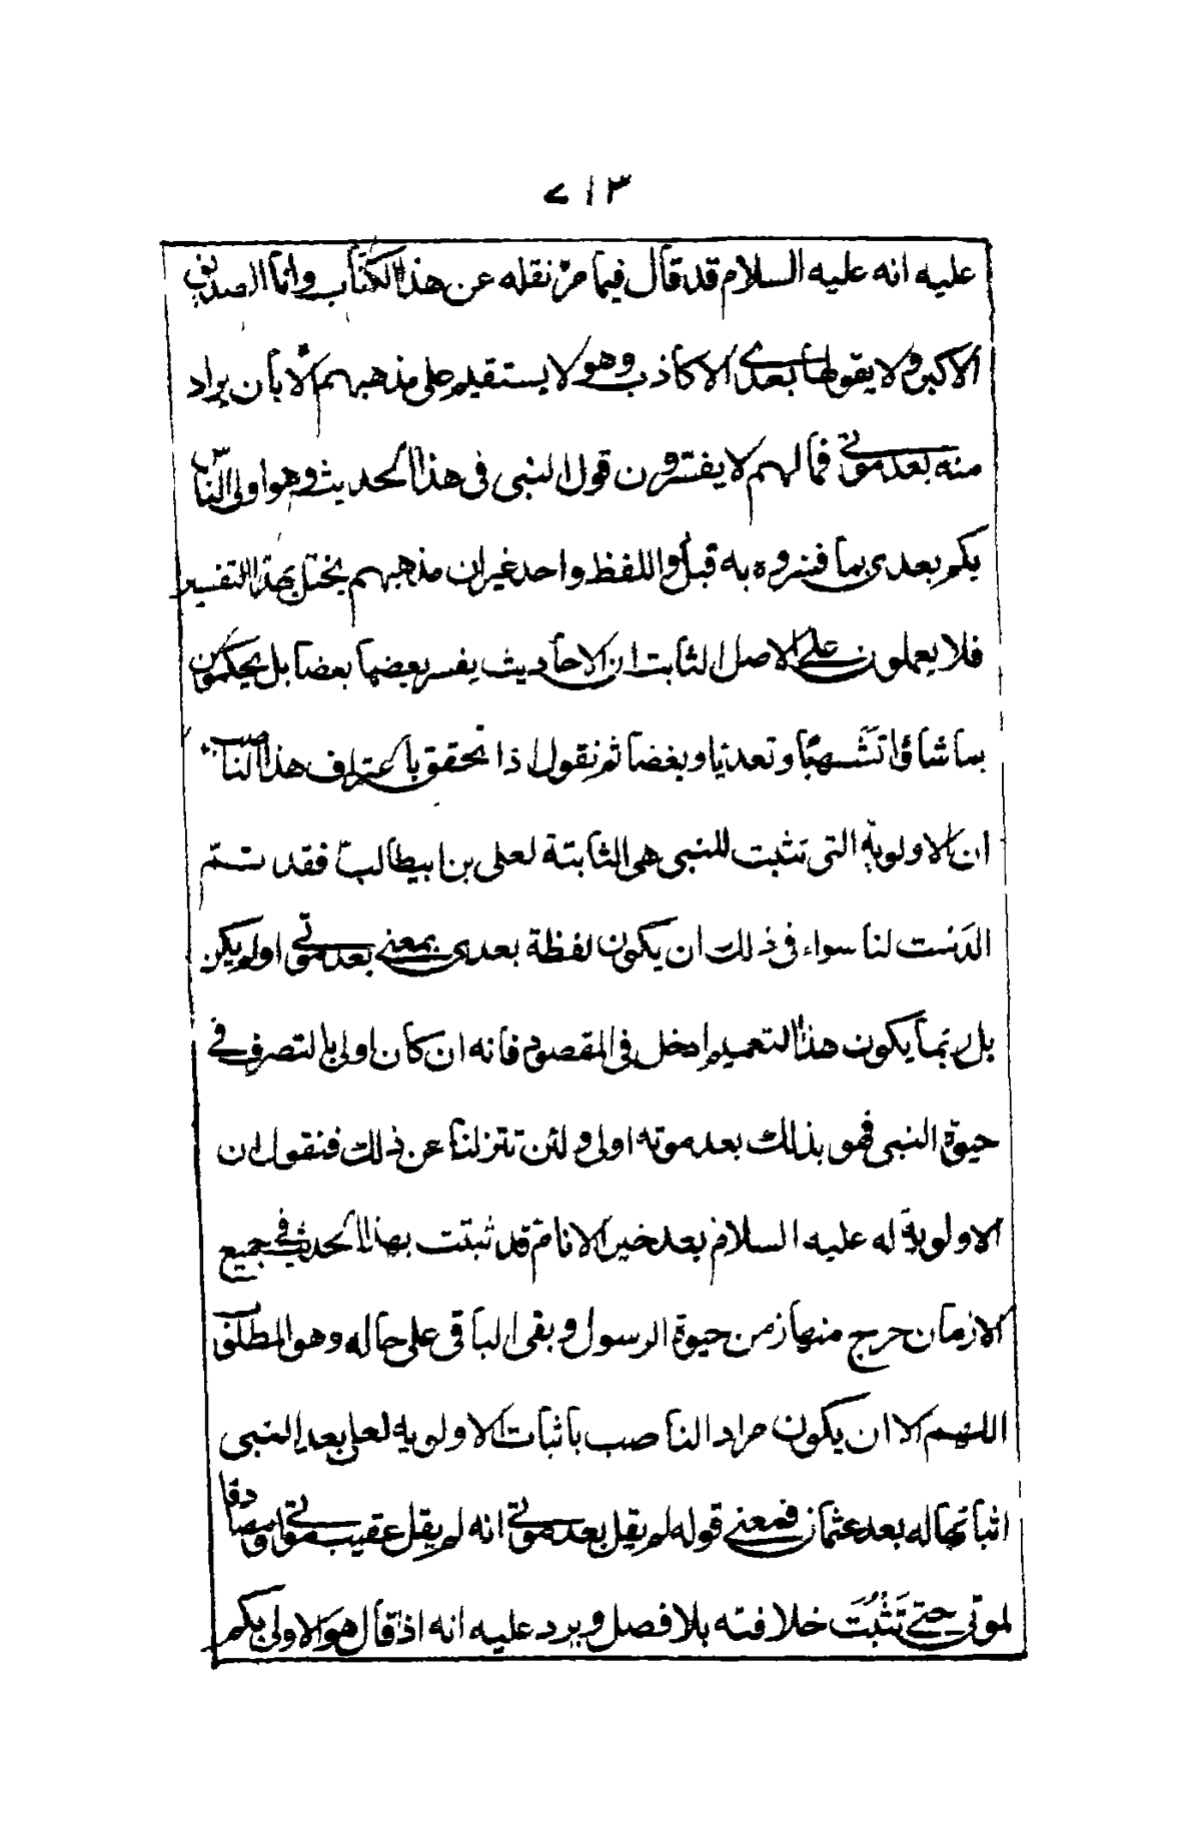 ٧١٣
عليه انه عليه السلام قد قال فيما مرّ نقله عن هذا الكتاب وانا الصديق
الاكبر ولا يقولها بعدى الا كاذب وهو لا يستقيم على مذهبهم الا بان يراد
منه بعد موتى فما لهم لا يفسّرون قول النبى فى هذا الحديث وهو اولى الناس
بكم بعدى بما فسروه به قبل واللفظ واحد غير ان مذهبهم يختل بهذا التفسير
فلا يعملون على الاصل الثابت ان الاحاديث يفسر بعضها بعضا بل يحكمون
بما شاؤا تشهّيا وتعديا وبغضا ثم نقول اذا تحقق باعتراف هذا الناصب
ان الاولوية التى تثبت للنبى هى الثابتة لعلى بن ابيطالب فقد تمّ
الدست لنا سواء فى ذلك ان يكون لفظة بعدى بمعنى بعد موتى اولم يكن
بل ربّما يكون هذا التعميم ادخل فى المقصود فانه ان كان اولى بالتصرف فى
حيوة النبى فهو بذلك بعد موته اولى ولئن تنزلنا عن ذلك فنقول ان
الاولوية له عليه السلام بعد خير الانام قد ثبتت بهذا الحديث فى جميع
الازمان خرج منها زمن حيوة الرسول وبقى الباقى على حاله وهو المطلق
اللهم الا ان يكون مراد الناصب باثبات الاولويه لعلى بعد النبى
اثباتها له بعد عثمان فمعنى قوله لم يقل بعد موتى انه لم يقل عقيب موتى ومصادفا
لموتى حتى تثبت خلافته بلا فصل ويرد عليه انه اذا قال هو الاولى بكم